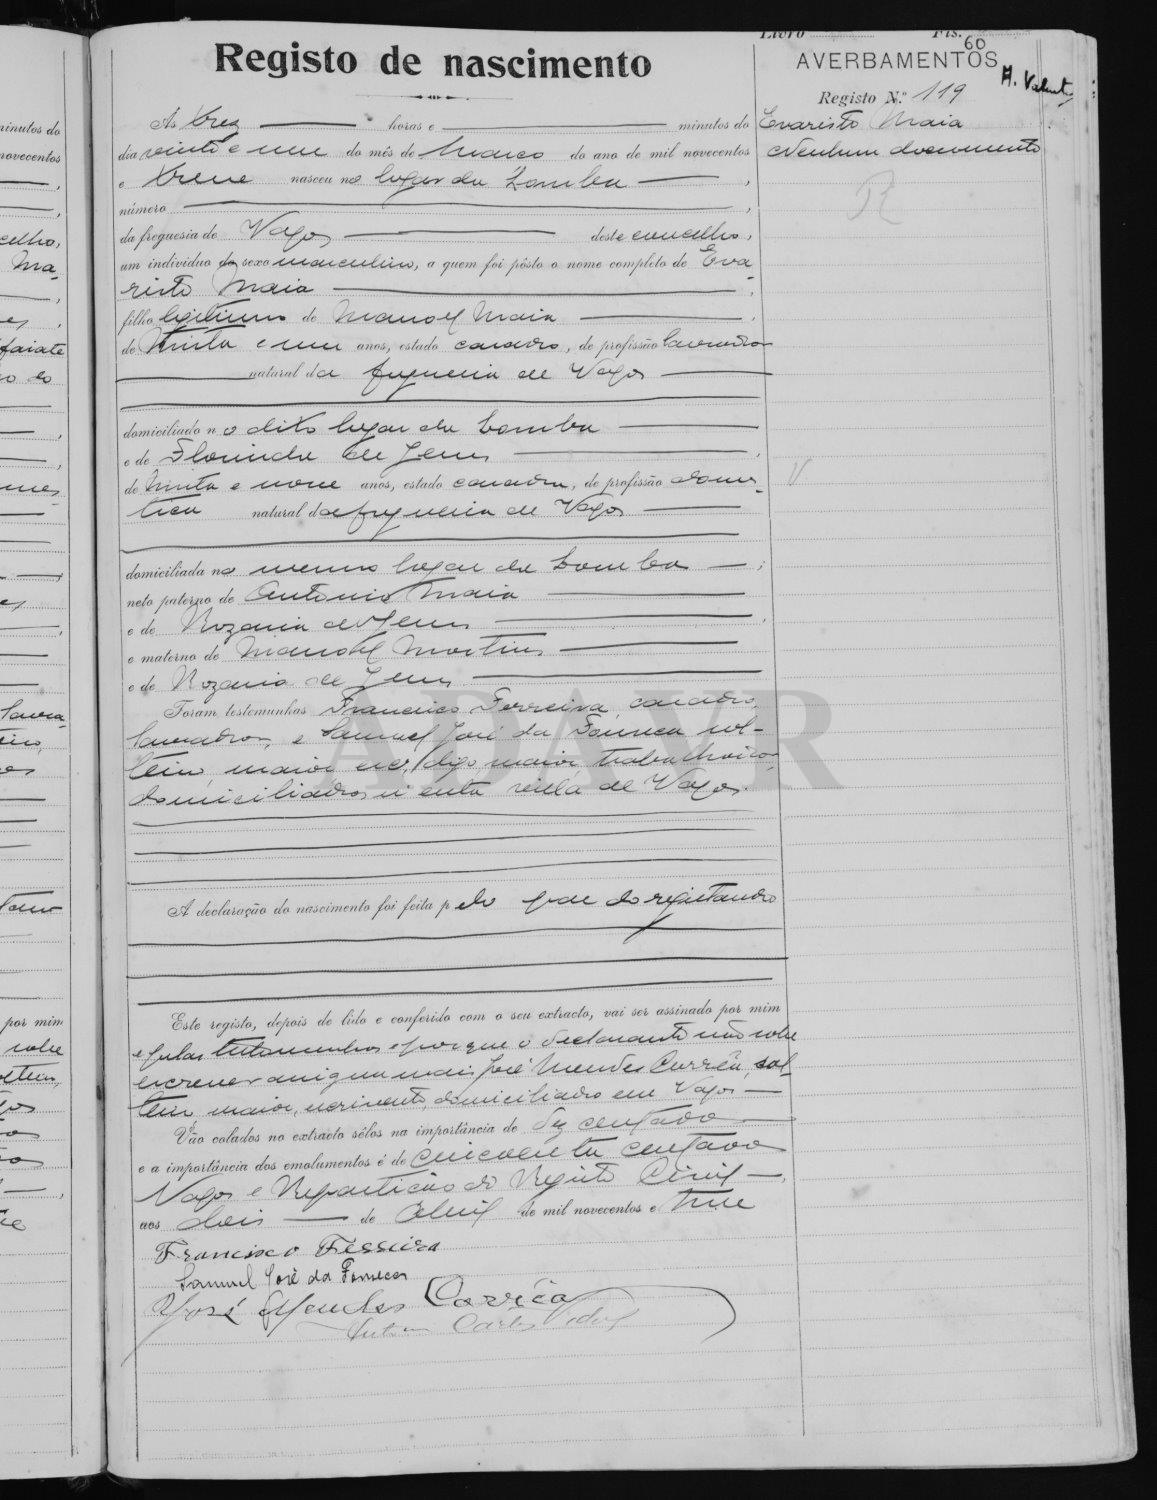 Livro Fls. 60
Registo de nascimento
AVERBAMENTOS
A. Valente
Registo N.º 119
Às trez horas e minutos do
Evaristo Maia
dia vinte e um do mês de Março do ano de mil novecentos
Nenhum documento
e treze nasceu no logar da Lomba ,
número ,
da freguesia de Vagos deste concelho,
um indivíduo do sexo masculino, a quem foi pôsto o nome completo de Eva-
risto Maia ,
filho legitimo de Manoel Maia ,
de trinta e um anos, estado casado, de profissão lavrador
natural da freguesia de Vagos
domiciliado no dito logar da Lomba
e de Florinda de Jesus ,
de trinta e nove anos, estado casada, de profissão domes-
tica natural da freguesia de Vagos
domiciliada no mesmo logar da Lomba ;
neto paterno de Antonio Maia
e de Rozaria de Jesus ,
e materno de Manoel Martins
e de Rozaria de Jesus
Foram testemunhas Francisco Ferreira, casado,
lavrador, e Samuel José da Fonseca sol-
teiro, maior, digo, maior, trabalhador
domiciliados n'esta villa de Vagos.
ADAVR
A declaração do nascimento foi feita pelo pae do registando
Este registo, depois de lido e conferido com o seu extracto, vai ser assinado por mim
e pelas testemunhas e porque o declarante não sabe
escrever assigna mais José Mendes Corrêa, sol-
teiro maior, escrivente, domiciliado em Vagos
Vão colados no extracto sêlos na importância de dez centavos
e a importância dos emolumentos é de cincoenta centavos
Vagos e Repartição do Registo Civil ,
aos dois de Abril de mil novecentos e treze
Francisco Ferreira
Samuel José da Fonseca
José Mendes Corrêa
Carlos Vidal